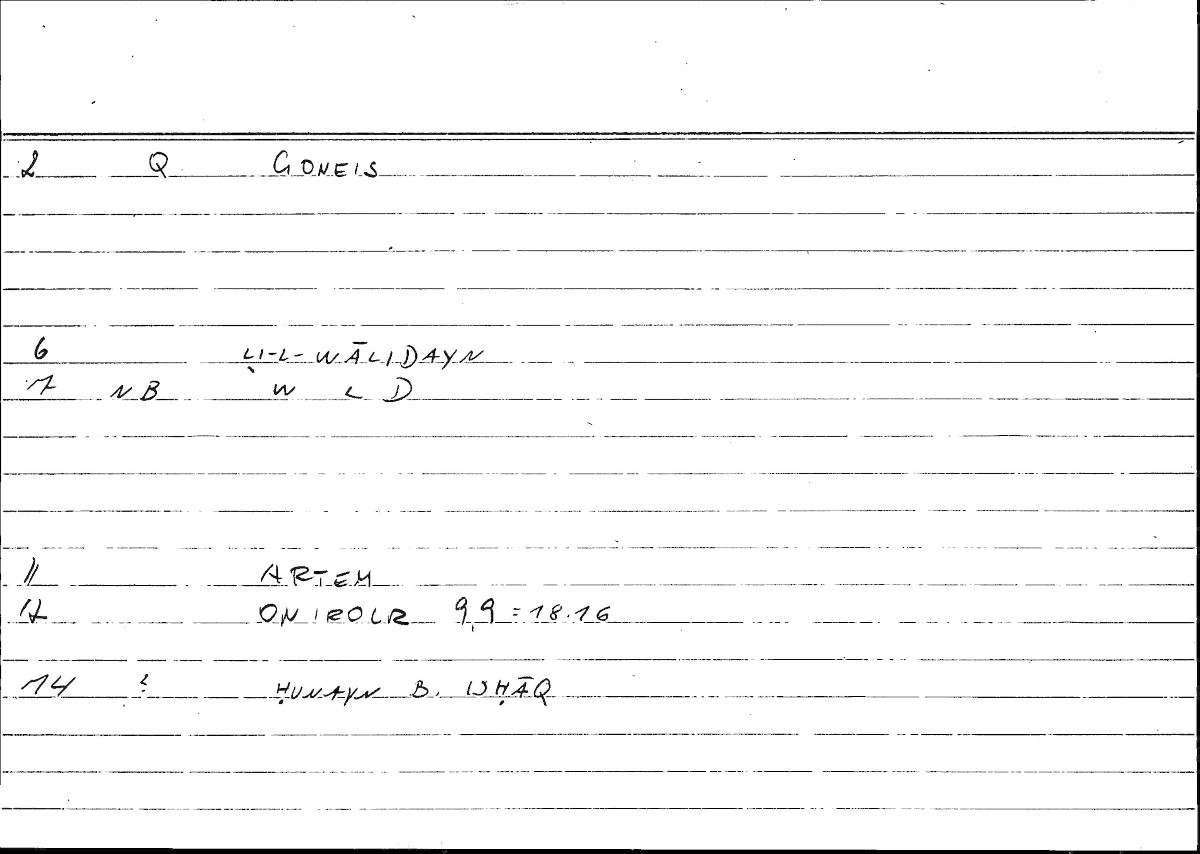 2 Q GONEIS
6 LI-L-WĀLIDAYN
7 NB W L D
11 ARTEM
12 ONIROCR 9,9 = 18.16
14 ? ḤUNAYN B. ISḤĀQ